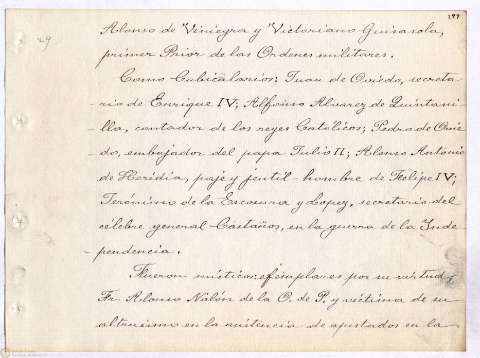 29
199
Alonso de Viniegra y Victoriano Guisasola,
primer Prior de las Ordenes militares.
Como Cubicularios: Juan de Oviedo, secreta-
rio de Enrique IV; Alfonso Alvarez de Quintani-
lla, contador de los reyes Católicos; Pedro de Ovie-
do, embajador del papa Julio II; Alonso Antonio
de Heredia, paje y jentil-hombre de Felipe IV;
Jerónimo de la Escosura y Lopez, secretario del
célebre general Castaños, en la guerra de la Inde-
pendencia.
Fueron místicos ejemplares por su virtud,
Fr. Alonso Nalón de la O. de P. y víctima de su
altruismo en la asistencia de apestados en la